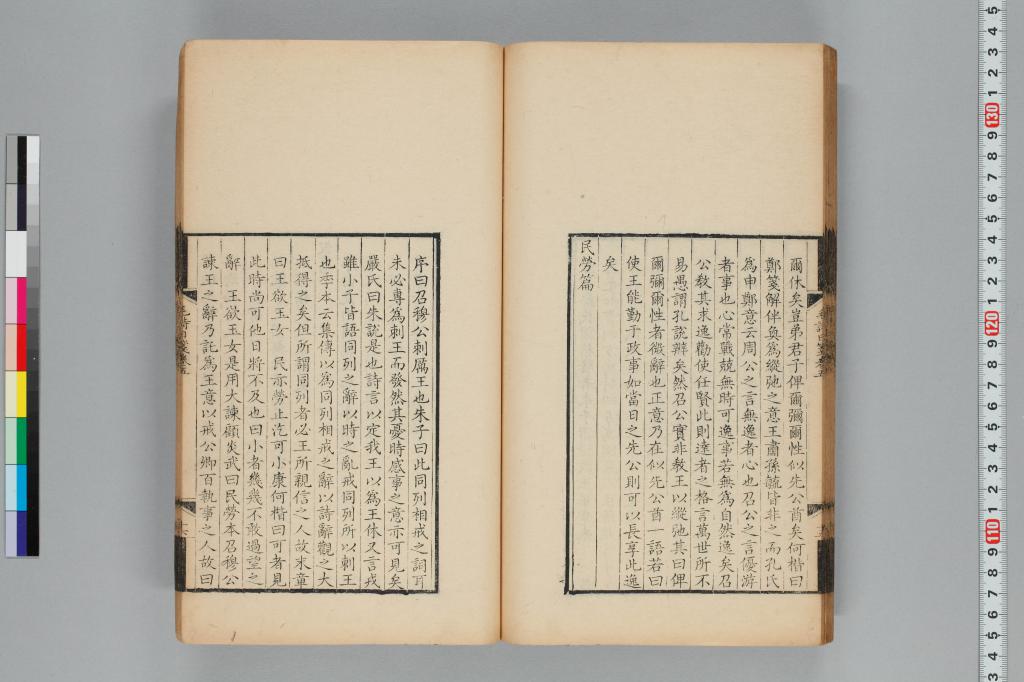 爾休矣豈弟君子俾爾彌爾性似先公酋矣何楷曰
鄭箋解伴奐為縱弛之意王肅孫毓皆非之而孔氏
為申鄭意云周公之言無逸者心也召公之言優游
者事也心常戰兢無時可逸事若無為自然逸矣召
公教其求逸勸使任賢此則達者之格言萬世所不
易愚謂孔說辯矣然召公實非教王以縱弛其曰俾
爾彌爾性者微辭也正意乃在似先公酋一語若曰
使王能勤于政事如當日之先公則可以長享此逸
矣
民勞篇
序曰召穆公刺厲王也朱子曰此同列相戒之詞耳
未必專為刺王而發然其憂時感事之意亦可見矣
嚴氏曰朱說是也詩言以定我王以為王休又言戎
雖小子皆語同列之辭以時之亂戒同列所以刺王
也李本云集傳以為同列相戒之辭以詩辭觀之大
抵得之矣但所謂同列者必王所親信之人故末章
曰王欲玉女 民亦勞止汔可小康何楷曰可者見
此時尚可他日將不及也曰小者幾幾不敢過望之
辭 王欲玉女是用大諫顧炎武曰民勞本召穆公
諫王之辭乃託為王意以戒公卿百執事之人故曰